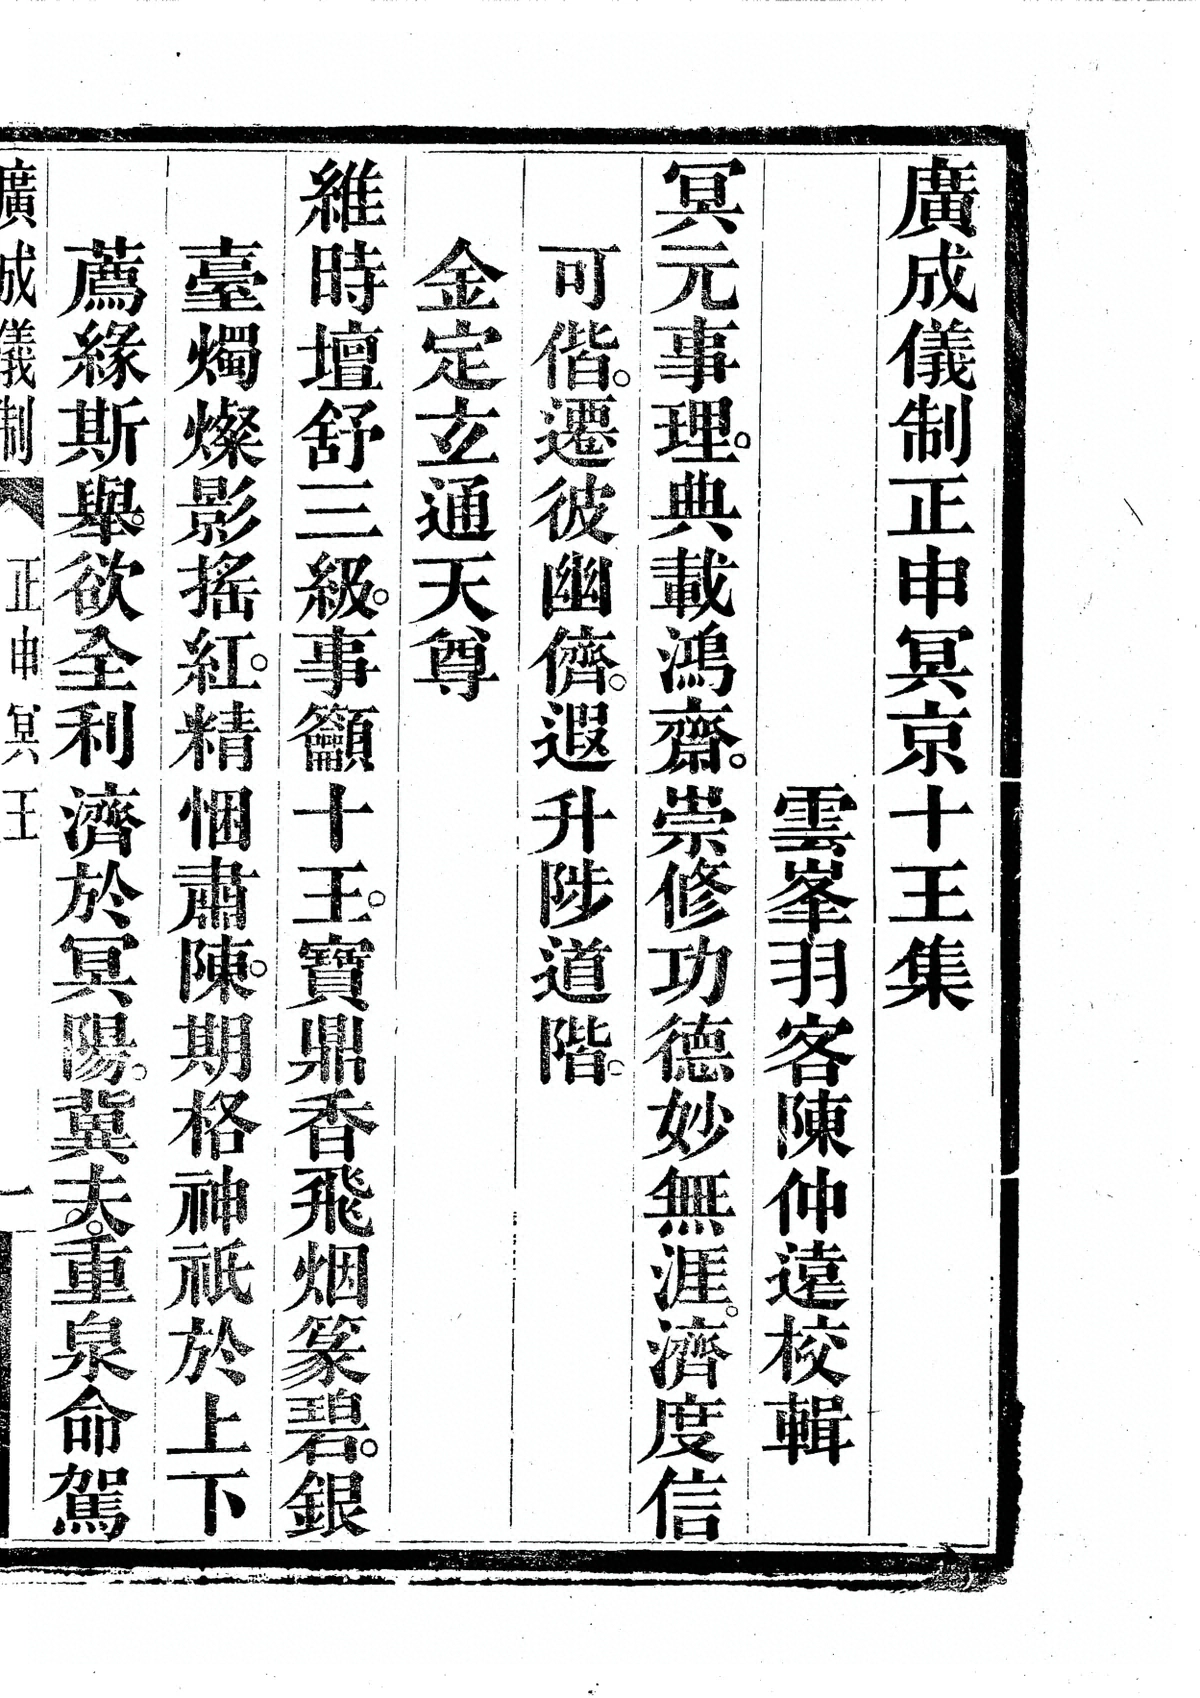 廣成儀制正申冥京十王集
雲峯羽客陳仲遠校輯
冥元事理。典載鴻齋。崇修功德妙無涯。濟度信
可偕。遷彼幽儕。遐升陟道階。
金定玄通天尊
維時壇舒三級。事籲十王。寶鼎香飛烟篆碧。銀
臺燭燦影搖紅。精悃肅陳。期格神祇於上下
薦緣斯舉。欲全利濟於冥陽。冀夫。重泉命駕
廣成儀制 正申冥王 一